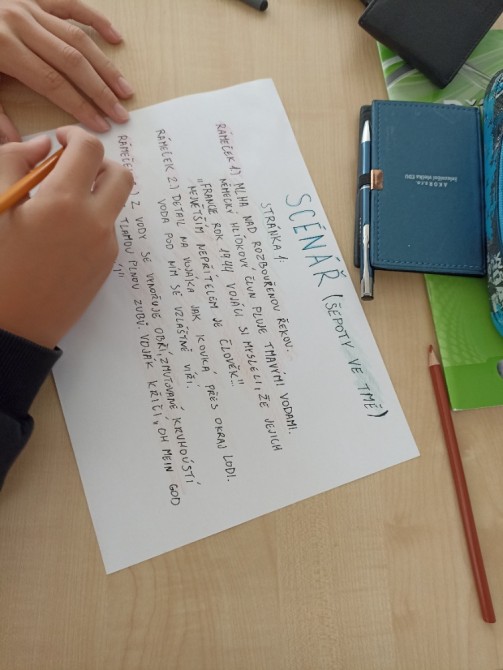 SCÉNÁŘ (ŠEPOTY VE TMĚ)
STRÁNKA 1:
RÁMEČEK 1) MLHA NAD ROZBOUŘENOU ŘEKOU.
NĚMECKÝ HLÍDKOVÝ ČLUN PLUJE TMAVÝMI VODAMI.
"FRANCIE ROK 1944 VOJÁCI SI MYSLELI, ŽE JEJICH
NEJVĚTŠÍM NEPŘÍTELEM JE ČLOVĚK..."
RÁMEČEK 2.) DETAIL NA VOJÁKA JAK KOUKÁ PŘES OKRAJ LODI.
VODA POD NÍM SE VZLÁŠTNĚ VÍŘÍ.
Z VODY SE VYNOŘUJE OBŘÍ, ZMUTOVANÉ KRUHOÚSTÍ
TLAMOU PLNOU ZUBŮ. VOJÁK KŘIČÍ "OH MEIN GOD
!"